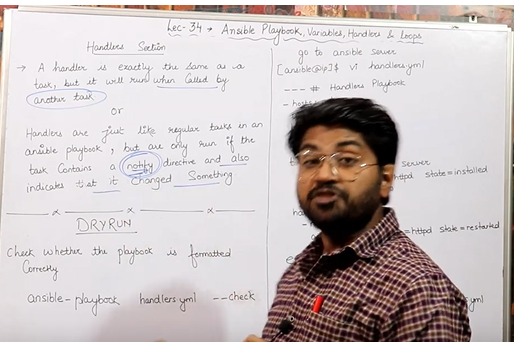 Lec-34 → Ansible Playbook, Variables, Handlers & Loops
Handlers Section
→ A handler is exactly the same as a
task, but it will run when called by
another task
or
Handlers are just like regular tasks in an
ansible playbook, but are only run if the
task contains a notify directive and also
indicates that it changed something
DRYRUN
Check whether the playbook is formatted
Correctly
ansible-playbook handlers.yml --check
go to ansible server
[ansible@ip]$ vi handlers.yml
--- # Handlers Playbook
- hosts
server
httpd state=installed
=httpd state=restarted